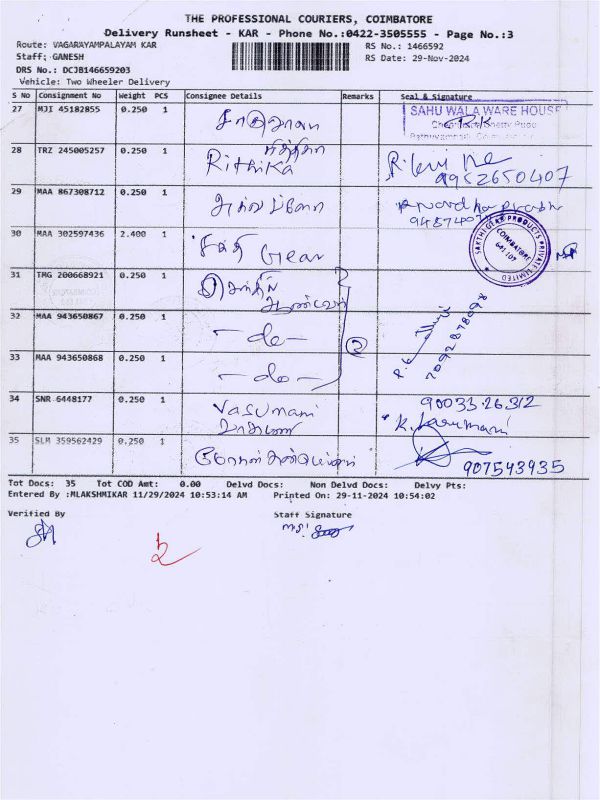 THE PROFESSIONAL COURIERS, COIMBATORE
Delivery Runsheet - KAR - Phone No.:0422-3505555 - Page No.:3
Route: VAGARAYAMPALAYAM KAR RS No.: 1466592
Staff: GANESH RS Date: 29-Nov-2024
DRS No.: DCJB146659203
Vehicle: Two Wheeler Delivery
S No Consignment No Weight PCS Consignee Details Remarks Seal & Signature
27 MJI 45182855 0.250 1 SAHU WALA WARE HOUSE
28 TRZ 245005257 0.250 1 Rithika 9952650407
29 MAA 867308712 0.250 1
30 MAA 302597436 2.400 1 சக்தி Gear SAKTHI GEAR PRODUCTS PRIVATE LIMITED COIMBATORE
31 TMG 200668921 0.250 1 செந்தில்
ஆண்டவர்
32 MAA 943650867 0.250 1 - do -
33 MAA 943650868 0.250 1 - do -
34 SNR 6448177 0.250 1 Vasumani 90033 26312
K. Vasumani
35 SLM 359562429 0.250 1 907543935
Tot Docs: 35 Tot COD Amt: 0.00 Delvd Docs: Non Delvd Docs: Delvy Pts:
Entered By :MLAKSHMIKAR 11/29/2024 10:53:14 AM Printed On: 29-11-2024 10:54:02
Verified By Staff Signature